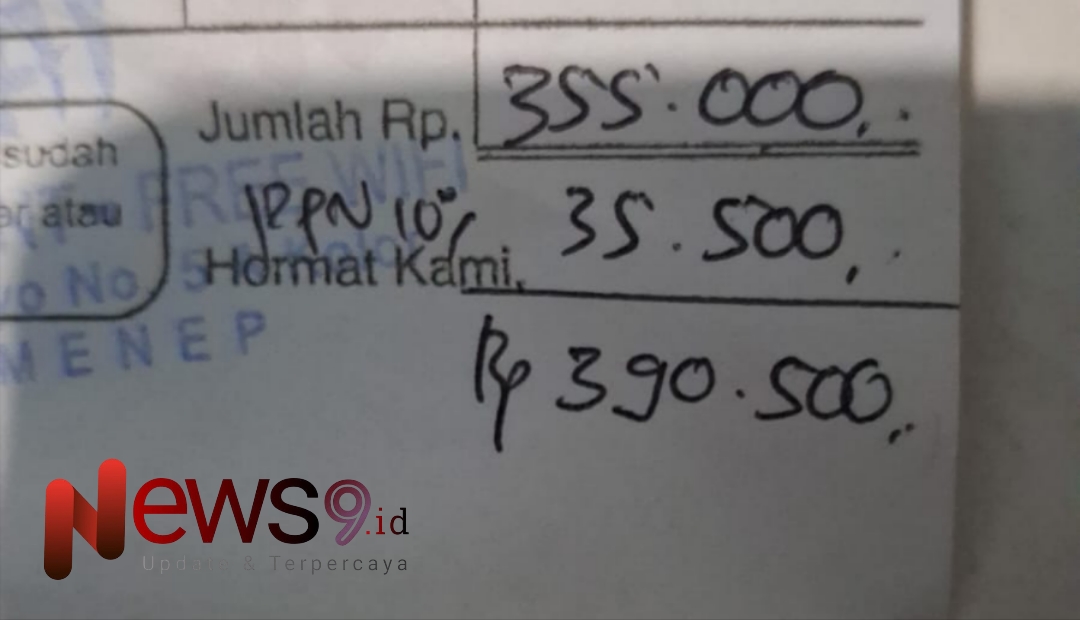 Jumlah Rp. 355.000,.
sudah
atau
FREE WIFI
PPN 10% 35.500,.
Hormat Kami,
No
MENEP
Rp 390.500,.
News9.id
Update & Terpercaya